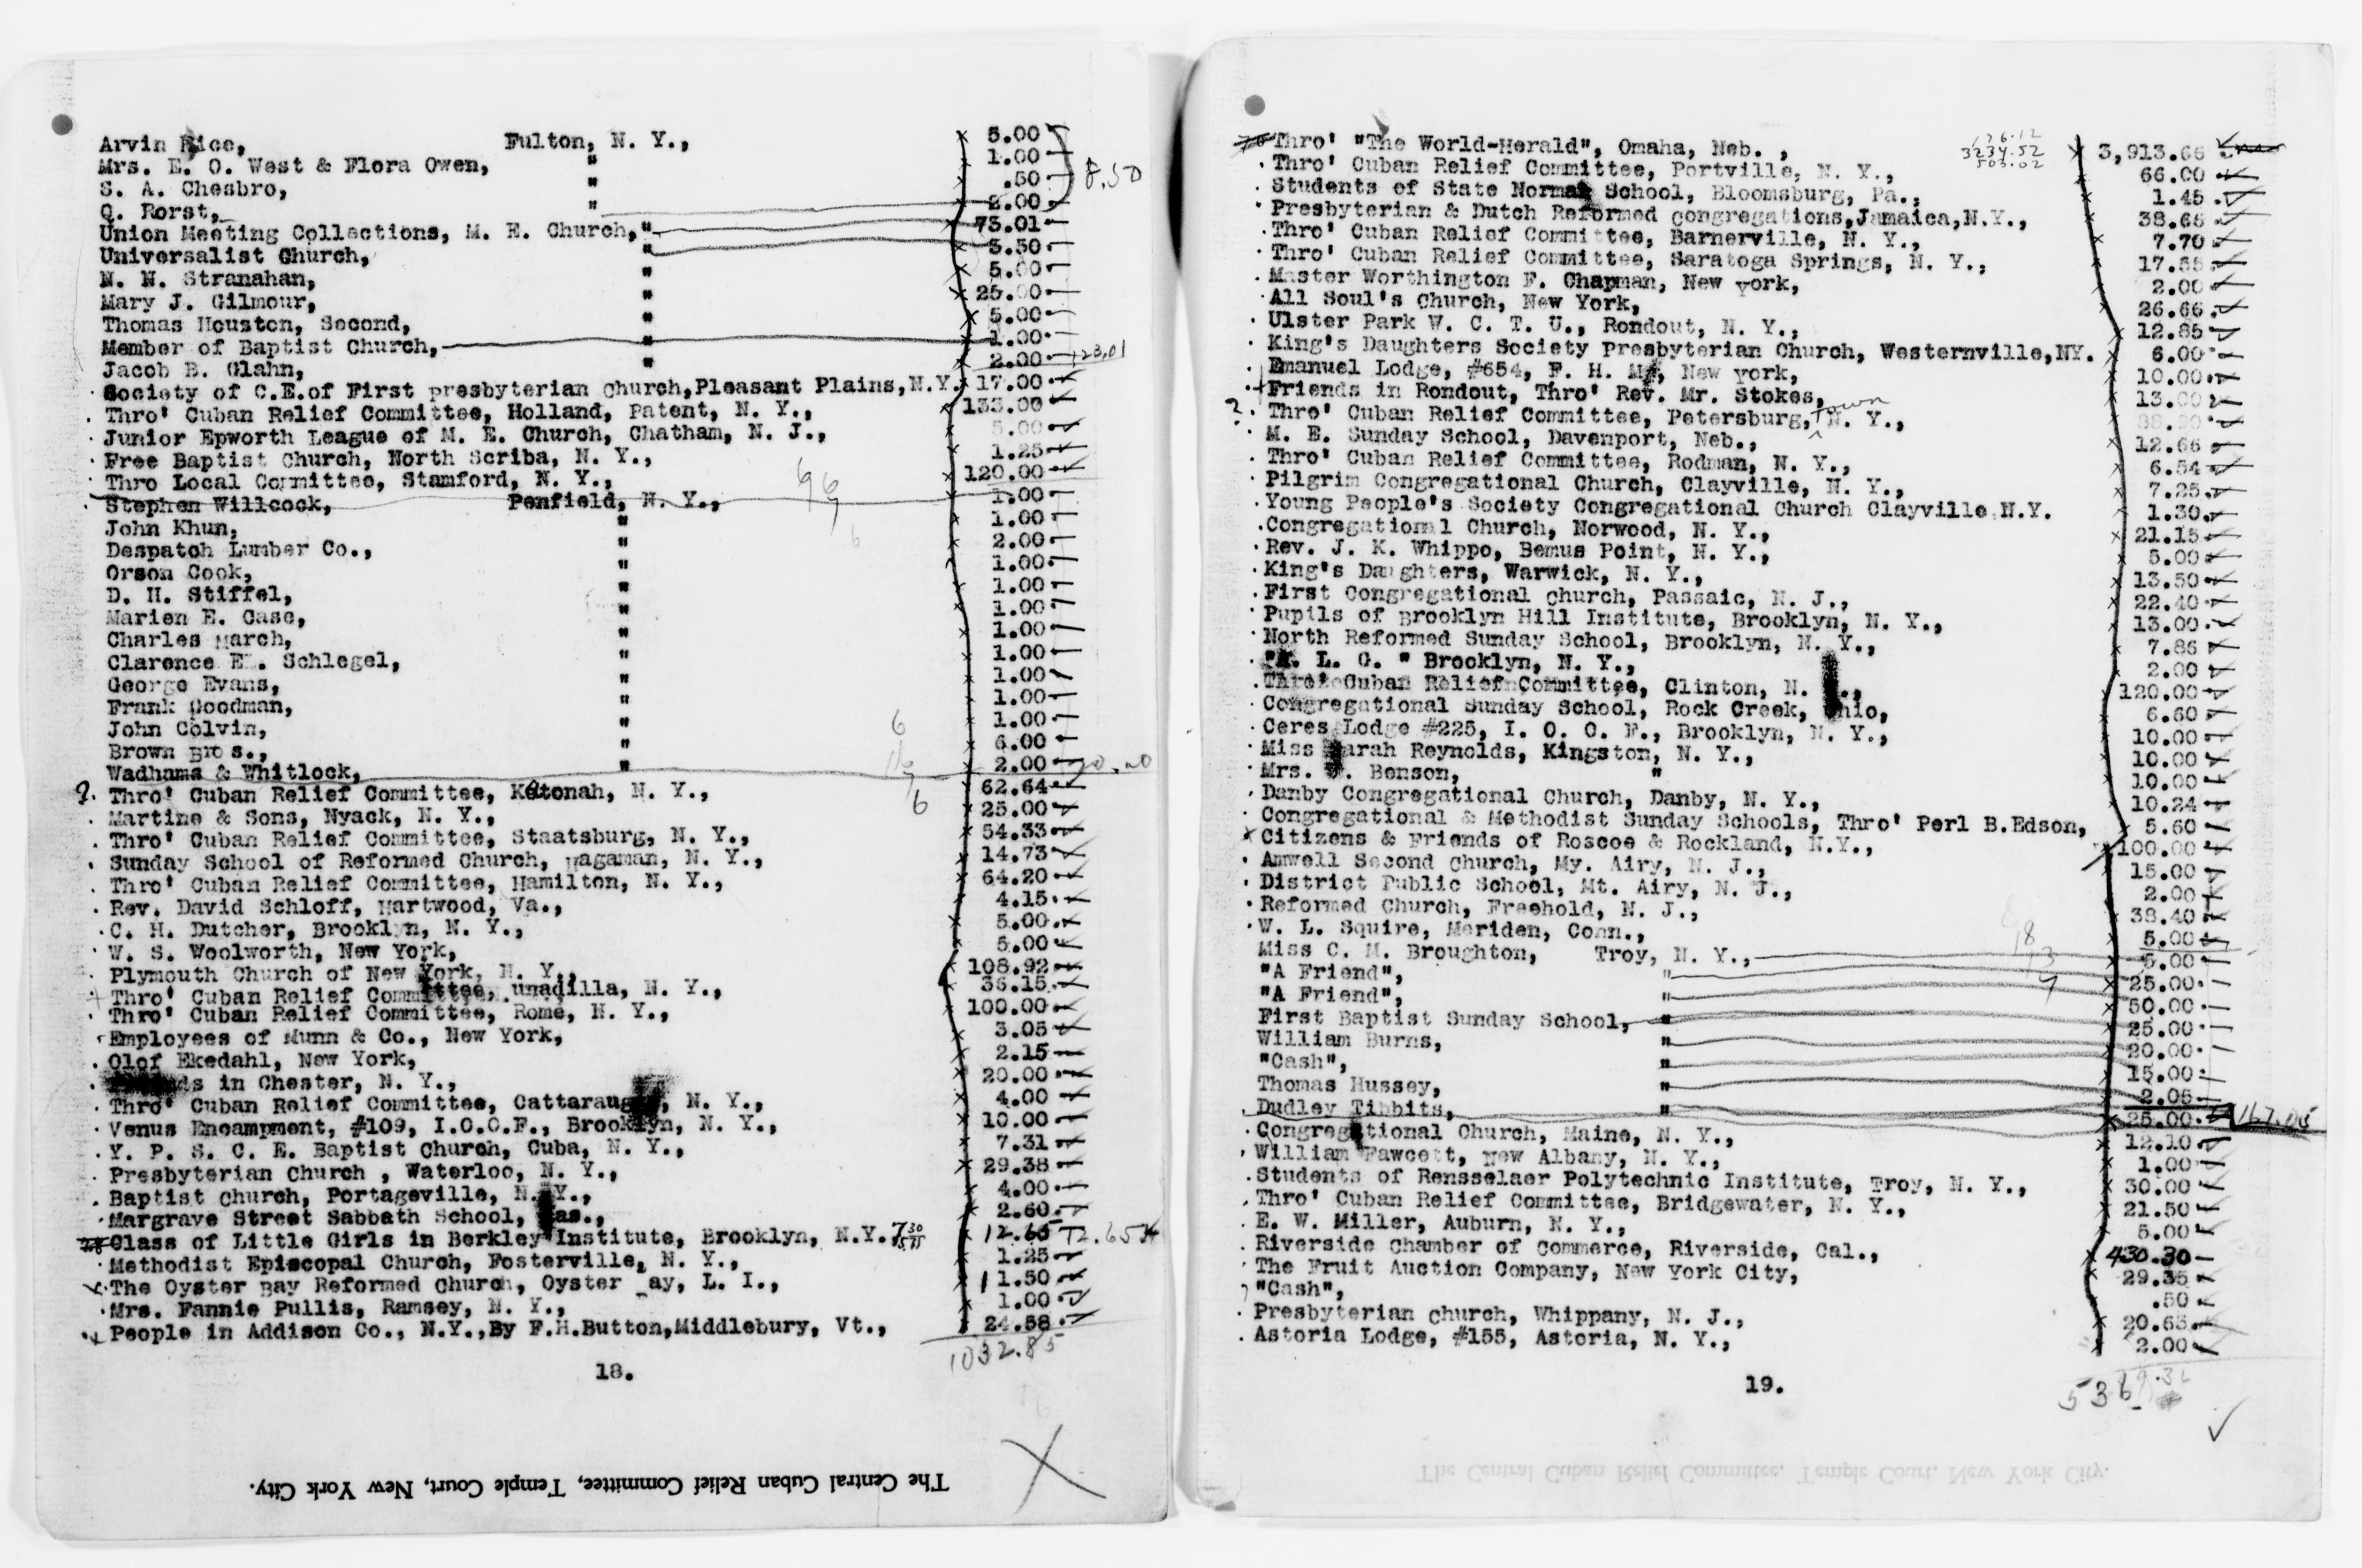 Arvin Rice, Fulton, N. Y., 5.00
Mrs. E. O. West & Flora Owen, " 1.00
S. A. Chesbro, " .50
Q. Rorst, " 2.00 8.50
Union Meeting Collections, M. E. Church, " 73.01
Universalist Church, " 3.50
N. N. Stranahan, " 5.00
Mary J. Gilmour, " 25.00
Thomas Houston, Second, " 5.00
Member of Baptist Church, " 1.00
Jacob B. Glahn, " 2.00
Society of C.E.of First Presbyterian Church,Pleasant Plains,N.Y. 17.00
Thro' Cuban Relief Committee, Holland, Patent, N. Y., 133.00
Junior Epworth League of M. E. Church, Chatham, N. J., 5.00
Free Baptist Church, North Scriba, N. Y., 1.25
Thro Local Committee, Stamford, N. Y., 120.00
Stephen Willcock, Penfield, N. Y., 1.00
John Khun, " 1.00
Despatch Lumber Co., " 2.00
Orson Cook, " 1.00
D. H. Stiffel, " 1.00
Marien E. Case, " 1.00
Charles March, " 1.00
Clarence E. Schlegel, " 1.00
George Evans, " 1.00
Frank Goodman, " 1.00
John Colvin, " 1.00
Brown Bros., " 6.00
Wadhams & Whitlock, " 2.00
?. Thro' Cuban Relief Committee, Katonah, N. Y., 62.64
Martine & Sons, Nyack, N. Y., 25.00
Thro' Cuban Relief Committee, Staatsburg, N. Y., 54.33
Sunday School of Reformed Church, Hagaman, N. Y., 14.73
Thro' Cuban Relief Committee, Hamilton, N. Y., 64.20
Rev. David Schloff, Hartwood, Va., 4.15
C. H. Dutcher, Brooklyn, N. Y., 5.00
W. S. Woolworth, New York, 5.00
Plymouth Church of New York, N. Y., 108.92
Thro' Cuban Relief Committee, Unadilla, N. Y., 36.15
Thro' Cuban Relief Committee, Rome, N. Y., 100.00
Employees of Munn & Co., New York, 3.05
Olof Ekedahl, New York, 2.15
in Chester, N. Y., 20.00
Thro' Cuban Relief Committee, N. Y., 4.00
Venus Encampment, #109, I.O.O.F., Brooklyn, N. Y., 10.00
Y. P. S. C. E. Baptist Church, Cuba, N. Y., 7.31
Presbyterian Church , Waterloo, N. Y., 29.38
Baptist Church, Portageville, N. Y., 4.00
Margrave Street Sabbath School, 2.60
Class of Little Girls in Berkley Institute, Brooklyn, N.Y. 12.65 12.65
Methodist Episcopal Church, Fosterville, N. Y., 1.25
The Oyster Bay Reformed Church, Oyster _ay, L. I., 11.50
Mrs. Fannie Pullis, Ramsey, N. Y., 1.00
People in Addison Co., N.Y.,By F.H.Button,Middlebury, Vt., 24.58
1032.85
18.
The Central Cuban Relief Committee, Temple Court, New York City.
Thro' "The World-Herald", Omaha, Neb. , 3234.52 3,913.66
Thro' Cuban Relief Committee, Portville, N. Y., 66.00
Students of State Normal School, Bloomsburg, Pa., 1.45
Presbyterian & Dutch Reformed congregations,Jamaica,N.Y., 38.65
Thro' Cuban Relief Committee, Barnerville, N. Y., 7.70
Thro' Cuban Relief Committee, Saratoga Springs, N. Y., 17.55
Master Worthington F. Chapman, New York, 2.00
All Soul's Church, New York, 26.66
Ulster Park W. C. T. U., Rondout, N. Y., 12.85
King's Daughters Society Presbyterian Church, Westernville,NY. 6.00
Emanuel Lodge, #654, F. H. M., New York, 10.00
Friends in Rondout, Thro' Rev. Mr. Stokes, 13.00
?. Thro' Cuban Relief Committee, Petersburg, Town N. Y.,
M. E. Sunday School, Davenport, Neb., 12.66
Thro' Cuban Relief Committee, Rodman, N. Y., 6.54
Pilgrim Congregational Church, Clayville, N. Y., 7.25
Young People's Society Congregational Church Clayville N.Y. 1.30
Congregational Church, Norwood, N. Y., 21.15
Rev. J. K. Whippo, Bemus Point, N. Y., 5.00
King's Daughters, Warwick, N. Y., 13.50
First Congregational Church, Passaic, N. J., 22.40
Pupils of Brooklyn Hill Institute, Brooklyn, N. Y., 13.00
North Reformed Sunday School, Brooklyn, N. Y., 7.86
L. G. " Brooklyn, N. Y., 2.00
Thro' Cuban Relief Committee, Clinton, N. 120.00
Congregational Sunday School, Rock Creek, Ohio, 6.60
Ceres Lodge #225, I. O. O. F., Brooklyn, N. Y., 10.00
Miss Sarah Reynolds, Kingston, N. Y., 10.00
Mrs. Benson, " 10.00
Danby Congregational Church, Danby, N. Y., 10.24
Congregational & Methodist Sunday Schools, Thro' Perl B.Edson, 5.60
Citizens & Friends of Roscoe & Rockland, N.Y., 100.00
Amwell Second Church, My. Airy, N. J., 15.00
District Public School, Mt. Airy, N. J., 2.00
Reformed Church, Freehold, N. J., 38.40
W. L. Squire, Meriden, Conn., 5.00
Miss C. M. Broughton, Troy, N. Y., 5.00
"A Friend", " 25.00
"A Friend", " 50.00
First Baptist Sunday School, " 25.00
William Burns, " 20.00
"Cash", " 15.00
Thomas Hussey, " 2.05
Dudley Tibbits, " 25.00 167.05
Congregational Church, Maine, N. Y., 12.10
William Fawcett, New Albany, N. Y., 1.00
Students of Rensselaer Polytechnic Institute, Troy, N. Y., 30.00
Thro' Cuban Relief Committee, Bridgewater, N. Y., 21.50
E. W. Miller, Auburn, N. Y., 5.00
Riverside Chamber of Commerce, Riverside, Cal., 430.30
The Fruit Auction Company, New York City, 29.35
"Cash", .50
Presbyterian Church, Whippany, N. J., 20.65
Astoria Lodge, #155, Astoria, N. Y., 2.00
19.
The Central Cuban Relief Committee, Temple Court, New York City.